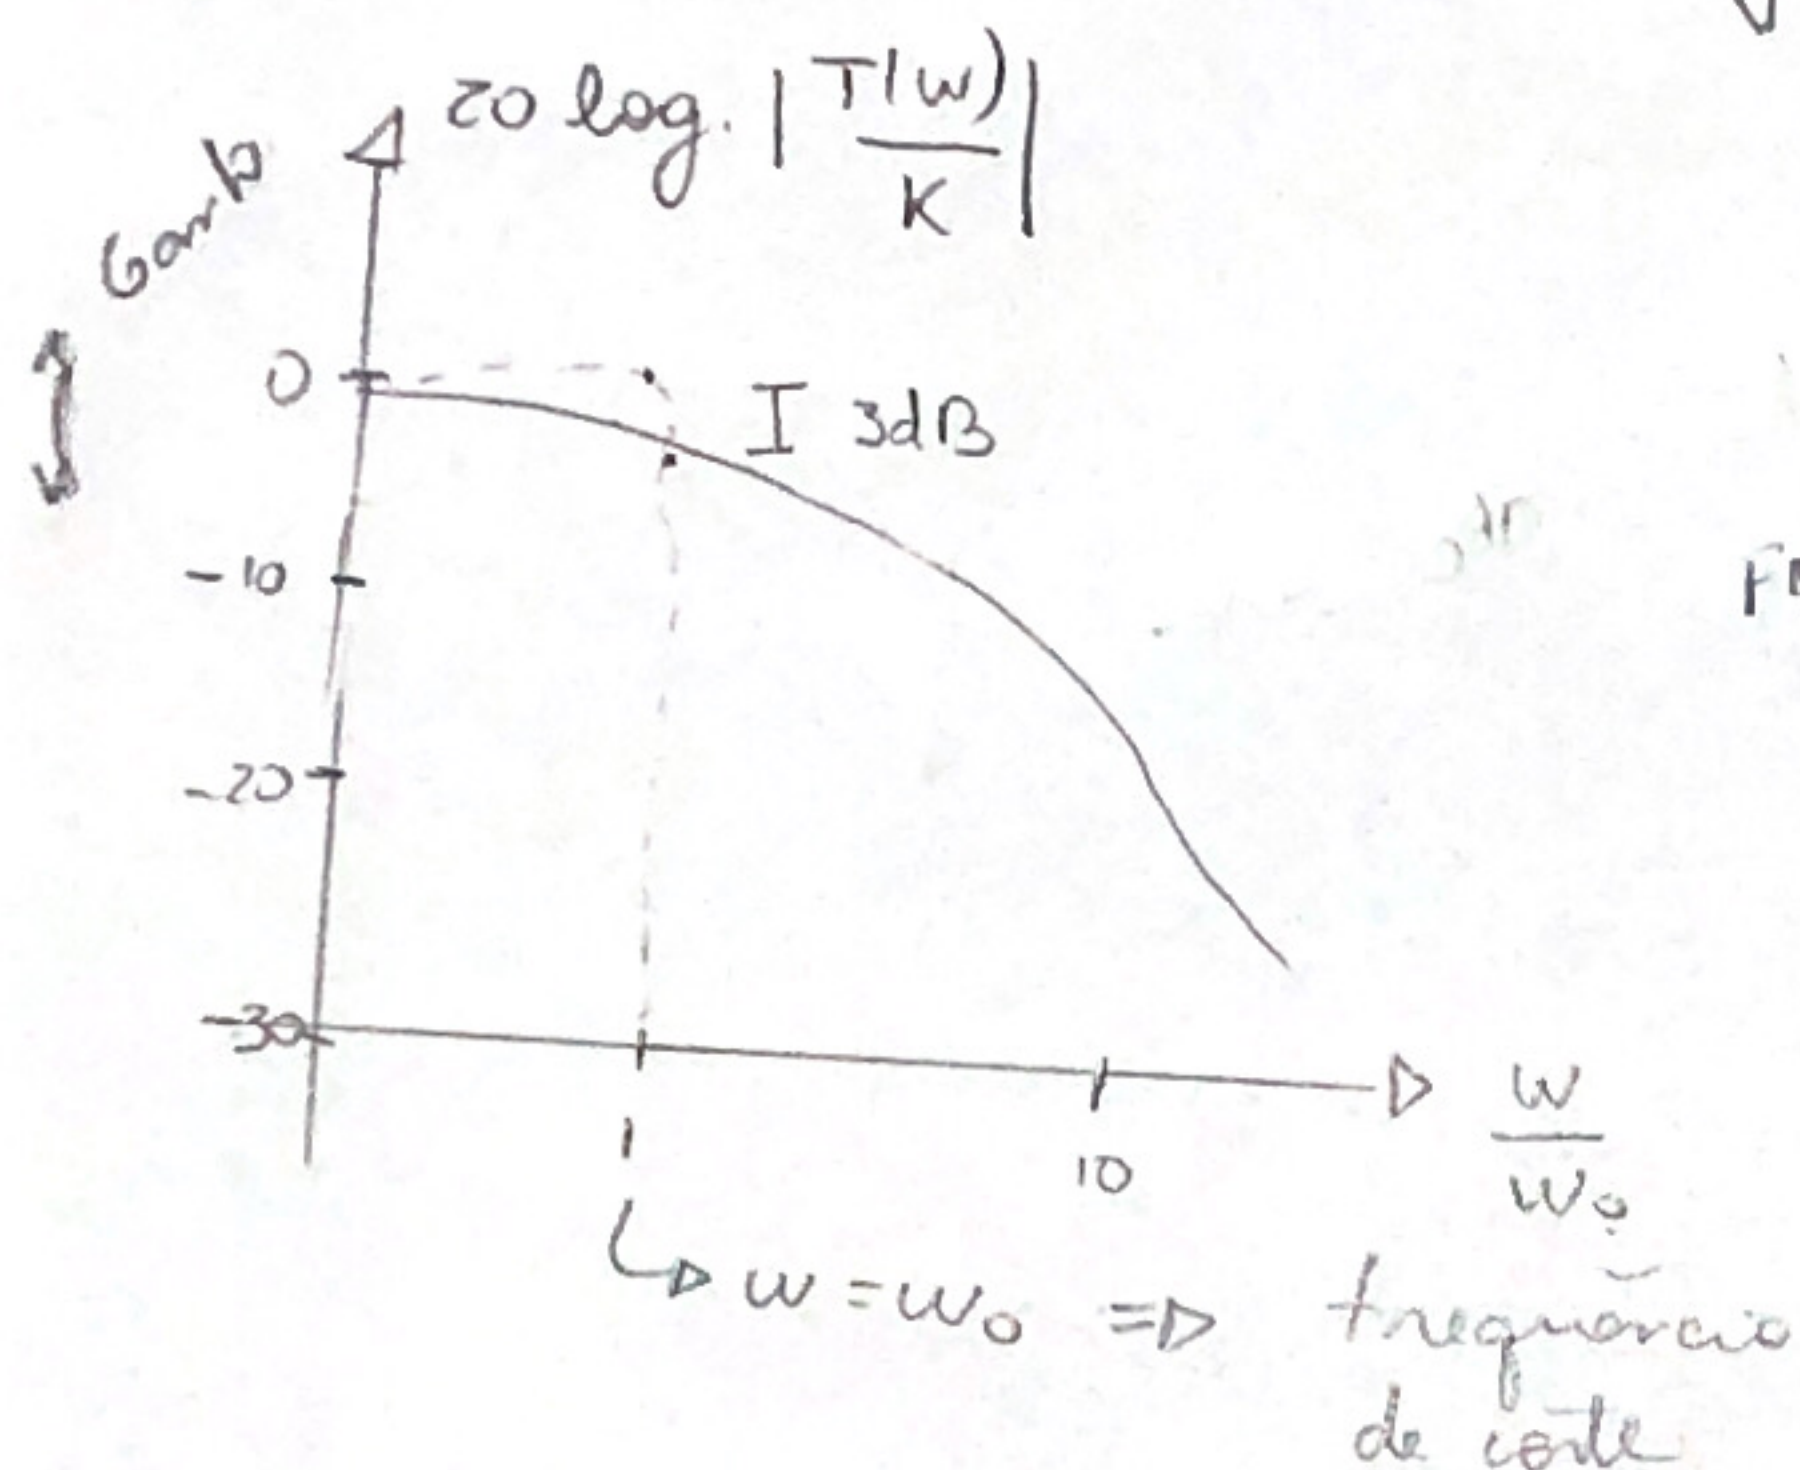 20 log. | T(w) / K |
0
I 3dB
-10
-20
-30
1
10
w / w₀
↳ w = w₀ => frequência
de corte